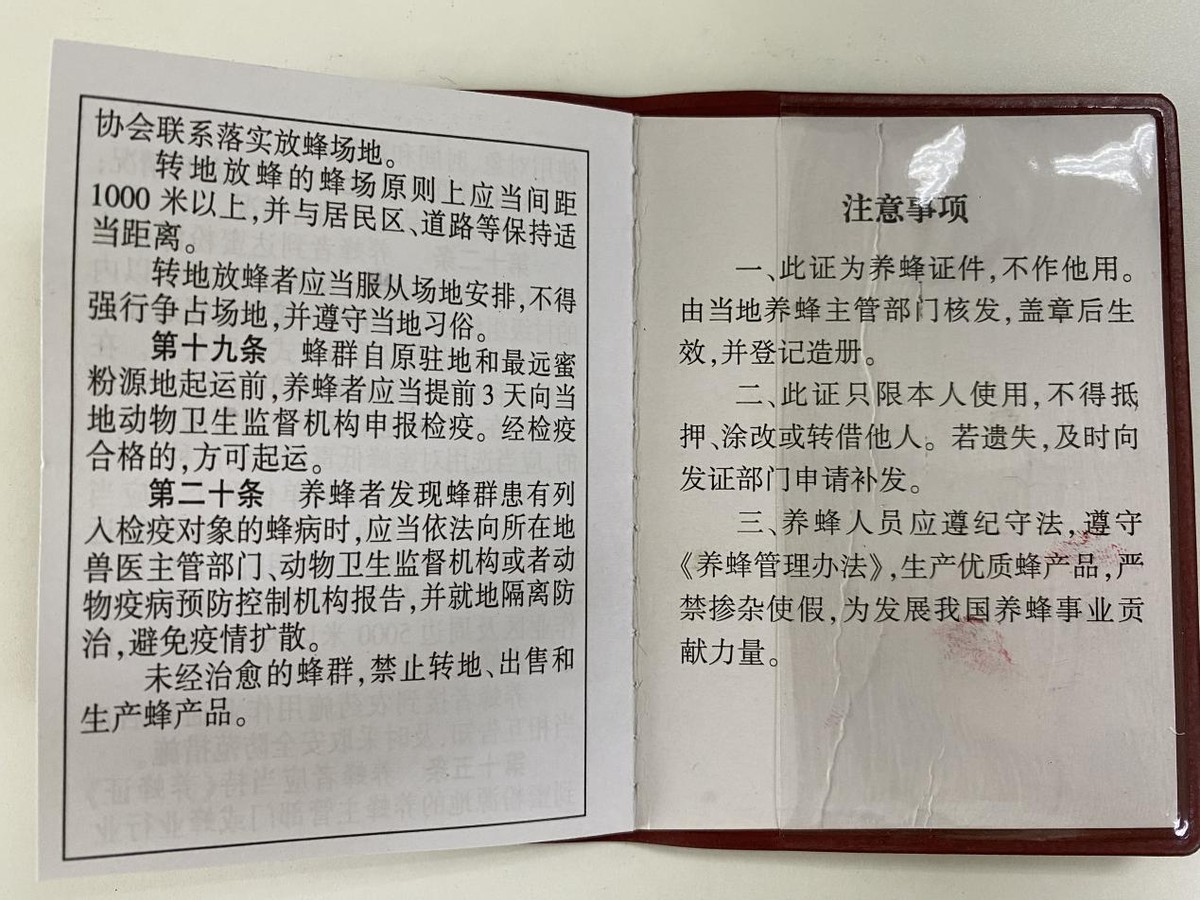 协会联系落实放蜂场地。
转地放蜂的蜂场原则上应当间距
1000 米以上,并与居民区、道路等保持适
当距离。
转地放蜂者应当服从场地安排,不得
强行争占场地,并遵守当地习俗。
第十九条 蜂群自原驻地和最远蜜
粉源地起运前,养蜂者应当提前 3 天向当
地动物卫生监督机构申报检疫。经检疫
合格的,方可起运。
第二十条 养蜂者发现蜂群患有列
入检疫对象的蜂病时,应当依法向所在地
兽医主管部门、动物卫生监督机构或者动
物疫病预防控制机构报告,并就地隔离防
治,避免疫情扩散。
未经治愈的蜂群,禁止转地、出售和
生产蜂产品。
注意事项
一、此证为养蜂证件,不作他用。
由当地养蜂主管部门核发,盖章后生
效,并登记造册。
二、此证只限本人使用,不得抵
押、涂改或转借他人。若遗失,及时向
发证部门申请补发。
三、养蜂人员应遵纪守法,遵守
《养蜂管理办法》,生产优质蜂产品,严
禁掺杂使假,为发展我国养蜂事业贡
献力量。